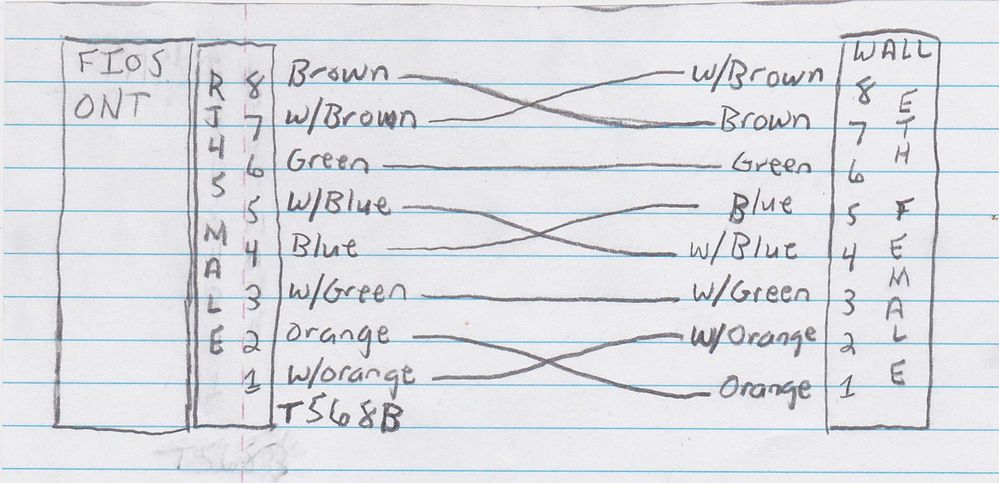 FIOS
ONT
RJ45 MALE
8 Brown
7 w/Brown
6 Green
5 w/Blue
4 Blue
3 w/Green
2 orange
1 w/orange
T568B
WALL
ETH FEMALE
w/Brown 8
Brown 7
Green 6
Blue 5
w/Blue 4
w/Green 3
w/Orange 2
Orange 1
T568B